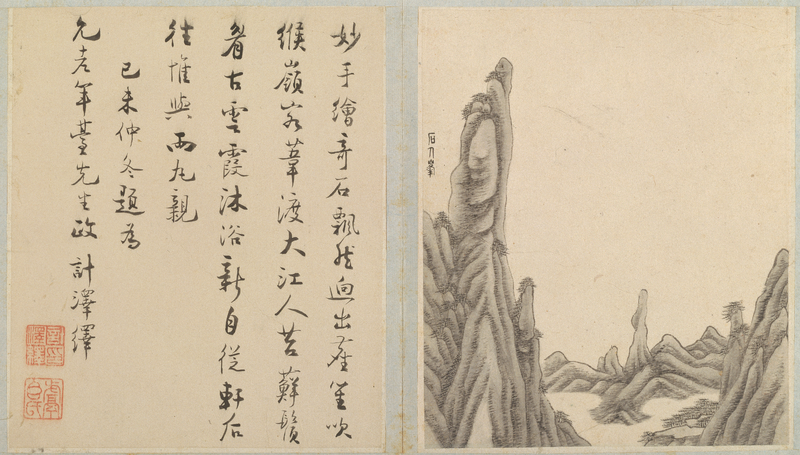 妙手繪奇石飄然迥出塵笙吹
緱嶺客葦渡大江人苔蘚鬚
眉古雲霞沐浴新自從軒后
往惟與兩丸親
己未仲冬題為
允老年臺先生政 計澤繹
石人峯